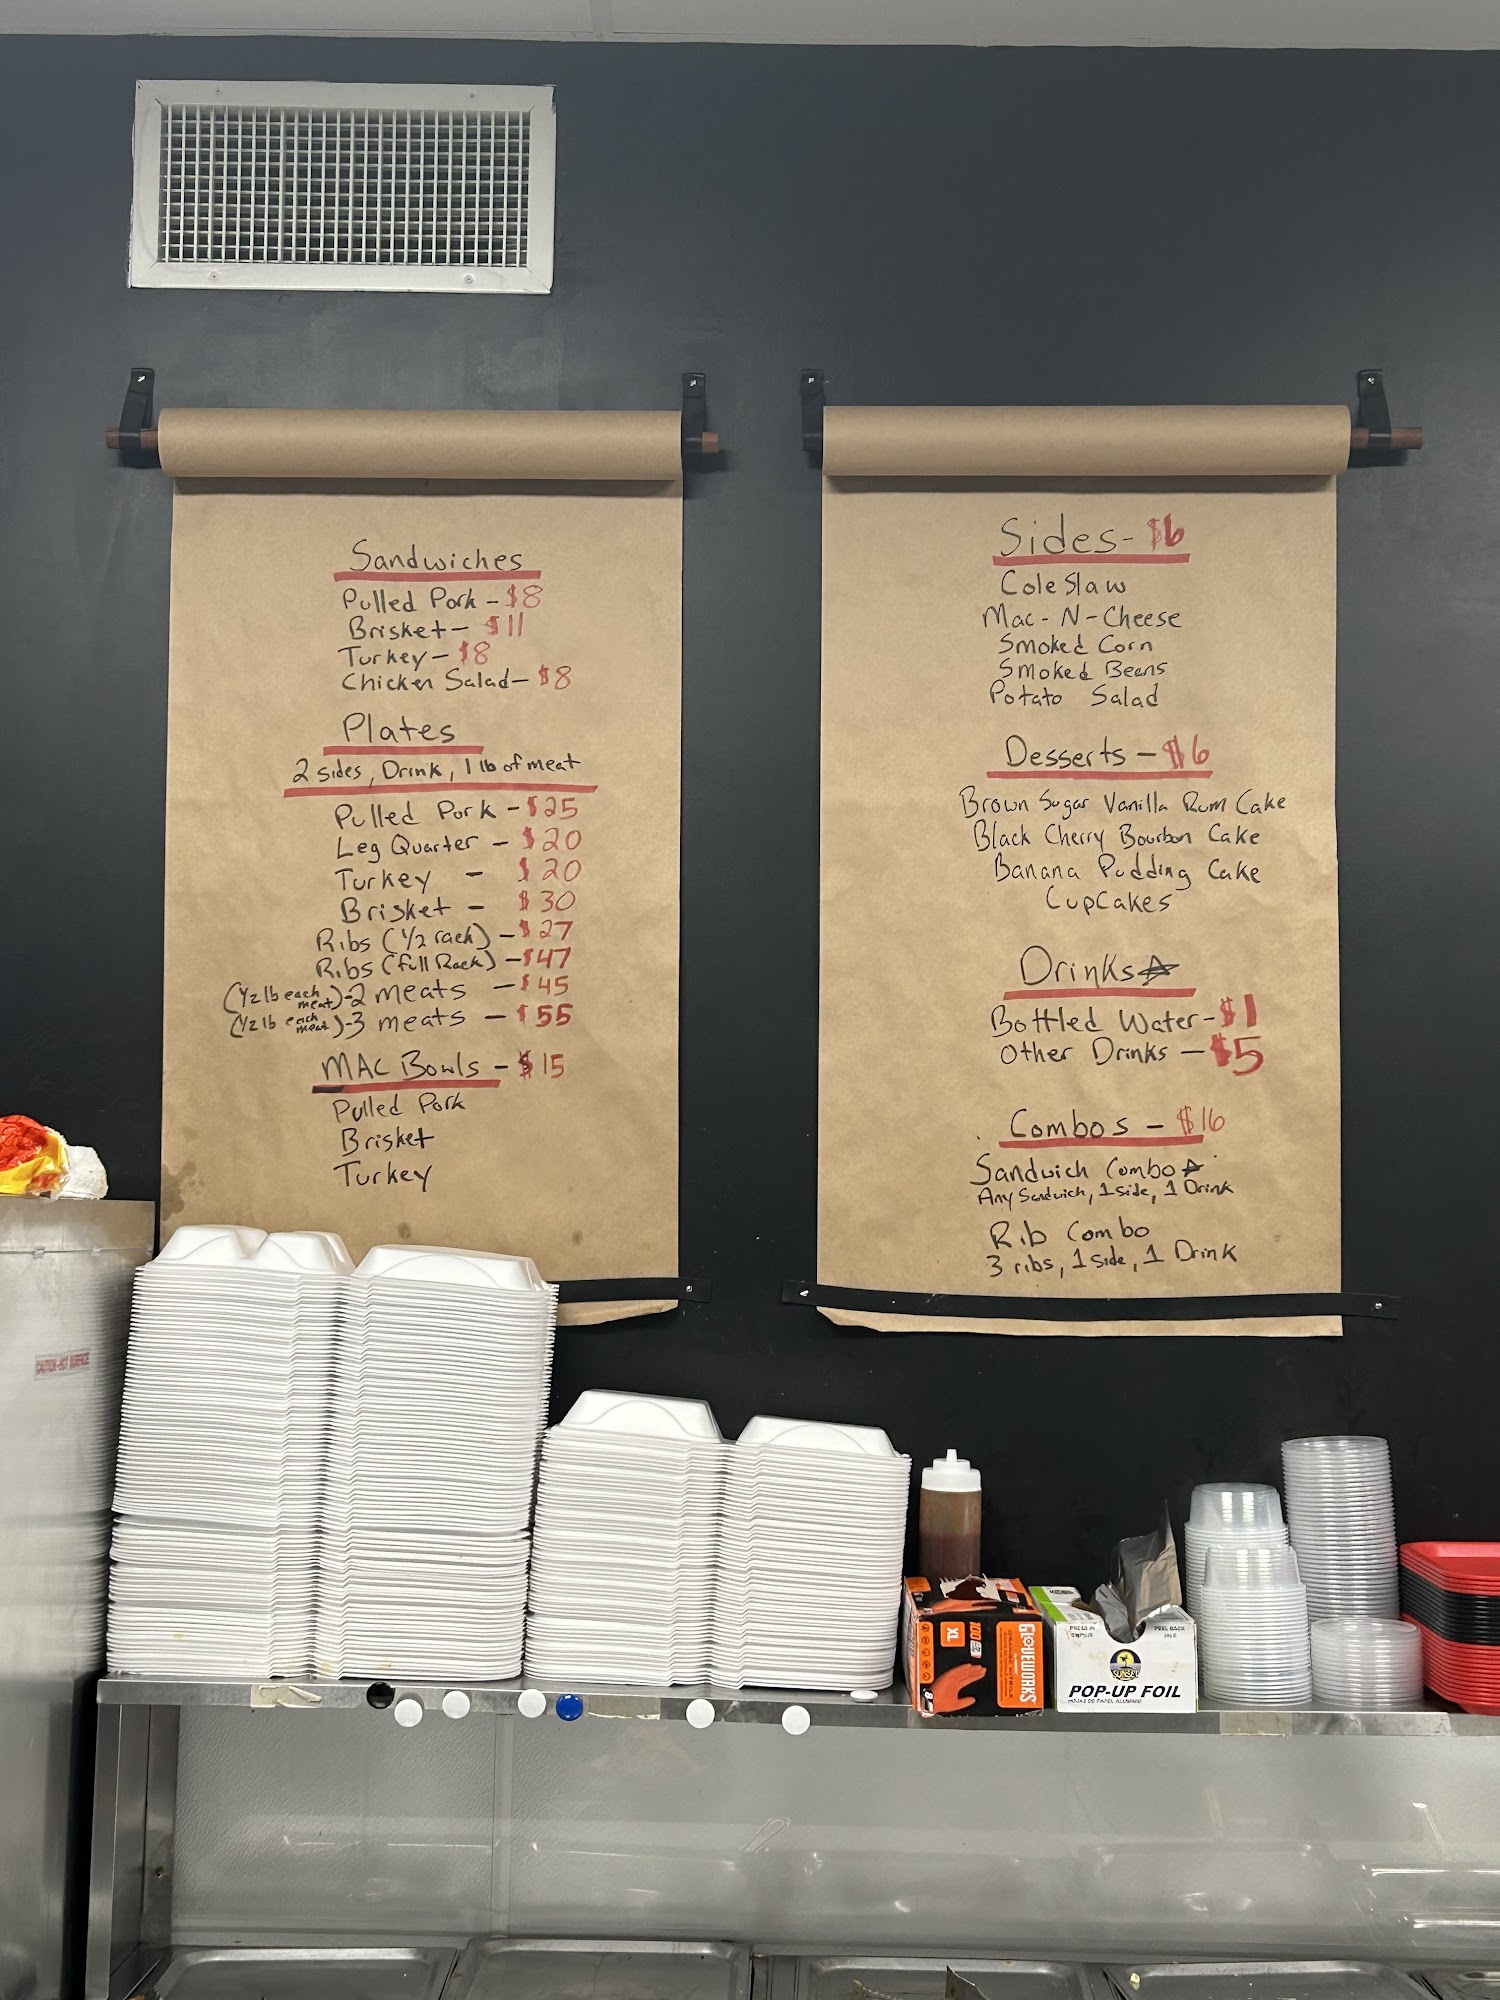 Sandwiches
Pulled Pork - $8
Brisket - $11
Turkey - $8
Chicken Salad - $8
Plates
2 sides, Drink, 1 lb of meat
Pulled Pork - $25
Leg Quarter - $20
Turkey - $20
Brisket - $30
Ribs (1/2 rack) - $27
Ribs (full Rack) - $47
(1/2 lb each meat) - 2 meats - $45
(1/2 lb each meat) - 3 meats - $55
MAC Bowls - $15
Pulled Pork
Brisket
Turkey
Sides - $6
Cole Slaw
Mac-N-Cheese
Smoked Corn
Smoked Beans
Potato Salad
Desserts - $6
Brown Sugar Vanilla Rum Cake
Black Cherry Bourbon Cake
Banana Pudding Cake
CupCakes
Drinks
Bottled Water - $1
Other Drinks - $5
Combos - $16
Sandwich Combo
Any Sandwich, 1 side, 1 Drink
Rib Combo
3 ribs, 1 side, 1 Drink
CAUTION-HOT SURFACE
XL
100
GLOVEWORKS
SUNSET
POP-UP FOIL